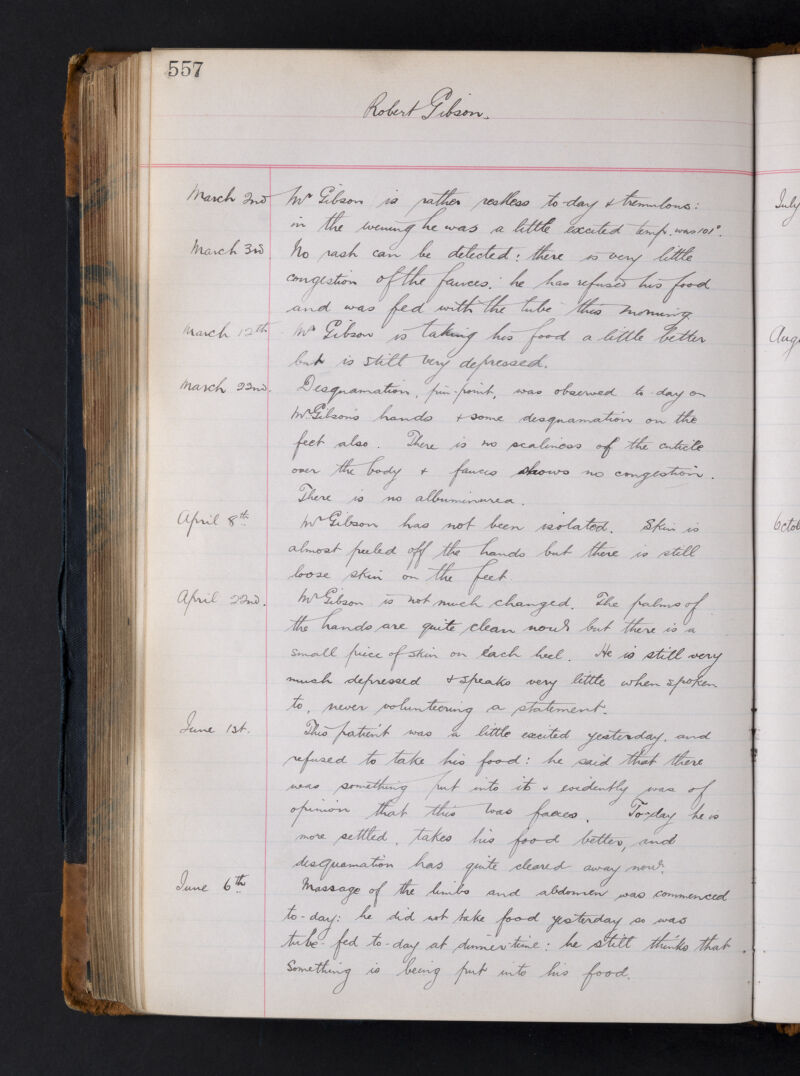 557
Robert Gibson.
March 2nd Mr Gibson is rather restless to-day & tremulous:
in the evening he was a little excited temp. was 101°.
March 3rd. No rash can be detected: there is very little
congestion of the fauces. he has refused his food
and was fed with the tube this morning.
March 12th. Mr Gibson is taking his food a little better
but is still very depressed.
March 22nd. Desquamation, pin-point, was observed to-day on
Mr Gibson's hands & some desquamation on the
feet also. There is no scaliness of the cuticle
over the body & fauces shows no congestion.
There is no albuminurea.
April 8th. Mr Gibson has not been isolated. Skin is
almost peeled off the hands but there is still
loose skin on the feet.
April 22nd. Mr Gibson is not much changed. The palms of
the hands are quite clean now but there is a
small piece of skin on each heel. He is still very
much depressed & speaks very little when spoken
to, never volunteering a statement.
June 1st. This patient was a little excited yesterday, and
refused to take his food: he said that there
was something put into it & evidently was of
opinion that this was faeces. To-day he is
more settled, takes his food better, and
desquamation has quite cleared away now.
June 6th Massage of the limbs and abdomen was commenced
to-day: he did not take food yesterday so was
tube-fed to-day at dinner-time: he still thinks that
something is being put into his food.
July
Aug
Octob